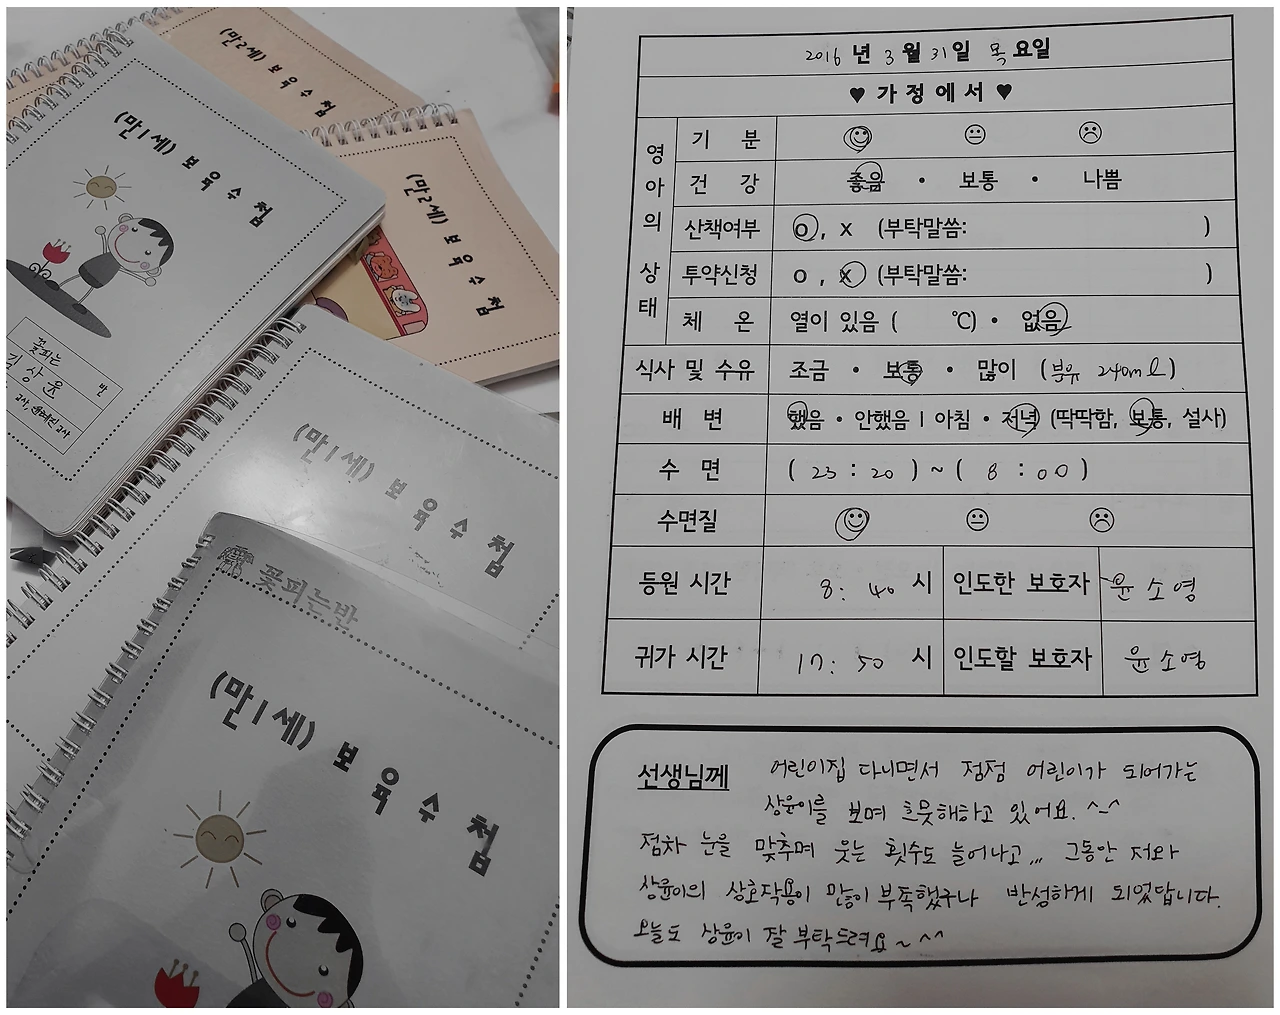 (만2세) 보육수첩
(만1세) 보육수첩
(만2세) 보육수첩
꽃피는 반
김상윤
(만1세) 보육수첩
꽃피는반
(만1세) 보육수첩
2016 년 3 월 31 일 목 요일
♥ 가정에서 ♥
영아의 상태
기 분 ☺ 😐 ☹
건 강 좋음 • 보통 • 나쁨
산책여부 o, x (부탁말씀: )
투약신청 o, x (부탁말씀: )
체 온 열이 있음 ( ℃) • 없음
식사 및 수유 조금 • 보통 • 많이 (분유 240ml)
배 변 했음 • 안했음 | 아침 • 저녁 (딱딱함, 보통, 설사)
수 면 ( 23 : 20 ) ~ ( 8 : 00 )
수면질 ☺ 😐 ☹
등원 시간 8: 40 시 인도한 보호자 윤소영
귀가 시간 17: 50 시 인도할 보호자 윤소영
선생님께 어린이집 다니면서 점점 어린이가 되어가는
상윤이를 보며 흐뭇해하고 있어요. ^-^
점차 눈을 맞추며 웃는 횟수도 늘어나고,,, 그동안 저와
상윤이의 상호작용이 많이 부족했구나 반성하게 되었답니다.
오늘도 상윤이 잘 부탁드려요~ ^^